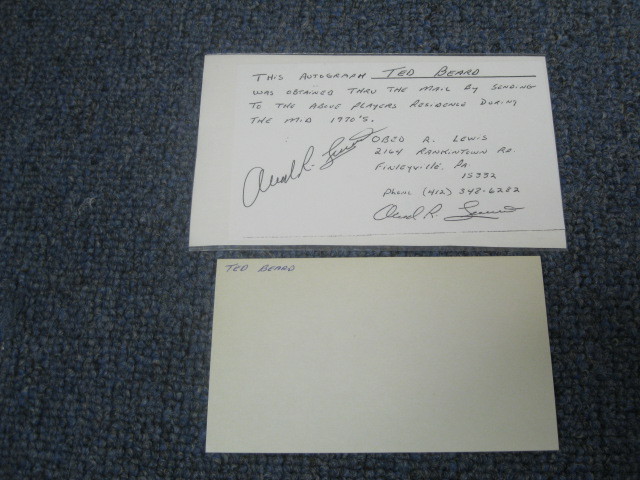 THIS AUTOGRAPH TED BEARD
WAS OBTAINED THRU THE MAIL BY SENDING
TO THE ABOVE PLAYERS RESIDENCE DURING
THE MID 1970'S.
Obed R. Lewis
OBED R. LEWIS
2164 RANKINTOWN RD.
FINLEYVILLE, PA
15332
PHONE (412) 348-6282
Obed R. Lewis
TED BEARD